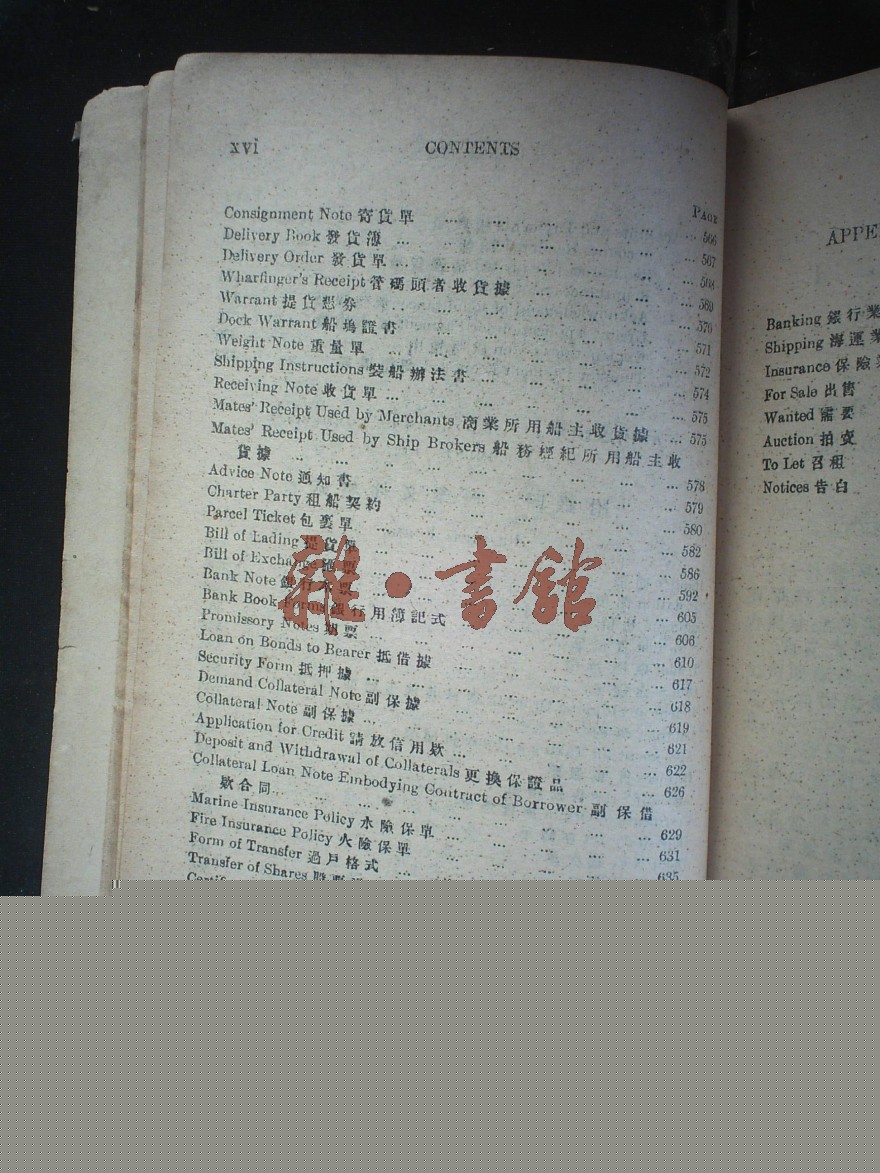 xvi CONTENTS
PAGE
Consignment Note 寄貨單 ... ... ... ... 566
Delivery Book 發貨簿 ... ... ... ... 567
Delivery Order 發貨單 ... ... ... ... 568
Wharfinger's Receipt 管碼頭者收貨據 ... ... ... 569
Warrant 提貨憑券 ... ... ... ... 570
Dock Warrant 船塢證書 ... ... ... ... 571
Weight Note 重量單 ... ... ... ... 572
Shipping Instructions 裝船辦法書 ... ... ... 574
Receiving Note 收貨單 ... ... ... ... 575
Mates' Receipt Used by Merchants 商業所用船主收貨據 ... 575
Mates' Receipt Used by Ship Brokers 船務經紀所用船主收
貨據 ... ... ... ... 578
Advice Note 通知書 ... ... ... ... 579
Charter Party 租船契約 ... ... ... ... 580
Parcel Ticket 包裹單 ... ... ... ... 582
Bill of Lading 提貨單 ... ... ... ... 586
Bill of Exchange 匯票 ... ... ... ... 592
Bank Note 銀行票 ... ... ... ... 605
Bank Book Forms 銀行用簿記式 ... ... ... 606
Promissory Notes 期票 ... ... ... ... 610
Loan on Bonds to Bearer 抵借據 ... ... ... 617
Security Form 抵押據 ... ... ... ... 618
Demand Collateral Note 副保據 ... ... ... 619
Collateral Note 副保據 ... ... ... ... 621
Application for Credit 請放信用欵 ... ... ... 622
Deposit and Withdrawal of Collaterals 更換保證品 ... ... 626
Collateral Loan Note Embodying Contract of Borrower 副保借
欵合同 ... ... ... ... 629
Marine Insurance Policy 水險保單 ... ... ... 631
Fire Insurance Policy 火險保單 ... ... ... 635
Form of Transfer 過戶格式 ... ... ...
Transfer of Shares
APPE
Banking 銀行業
Shipping 海運業
Insurance 保險
For Sale 出售
Wanted 需要
Auction 拍賣
To Let 召租
Notices 告白
雜·書館